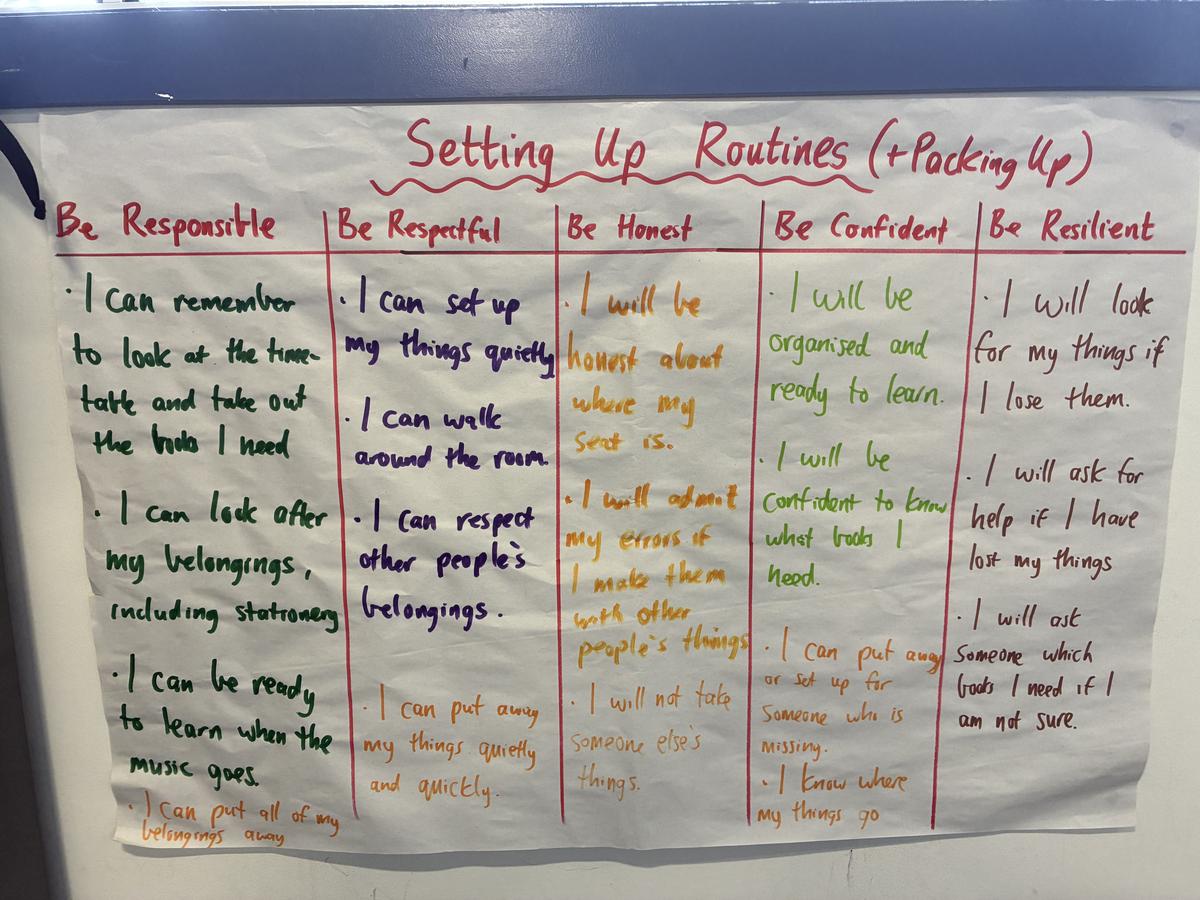 Setting Up Routines (+Packing Up)
Be Responsible
· I can remember
to look at the time-
table and take out
the books I need
· I can look after
my belongings,
including stationery
· I can be ready
to learn when the
music goes.
· I can put all of my
belongings away
Be Respectful
· I can set up
my things quietly
· I can walk
around the room.
· I can respect
other people's
belongings.
· I can put away
my things quietly
and quickly.
Be Honest
· I will be
honest about
where my
seat is.
· I will admit
my errors if
I make them
with other
people's things
· I will not take
someone else's
things.
Be Confident
· I will be
organised and
ready to learn.
· I will be
confident to know
what books I
need.
· I can put away
or set up for
someone who is
missing.
· I know where
my things go
Be Resilient
· I will look
for my things if
I lose them.
· I will ask for
help if I have
lost my things
· I will ask
someone which
books I need if I
am not sure.